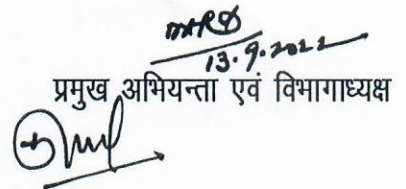 13.9.2022
प्रमुख अभियन्ता एवं विभागाध्यक्ष